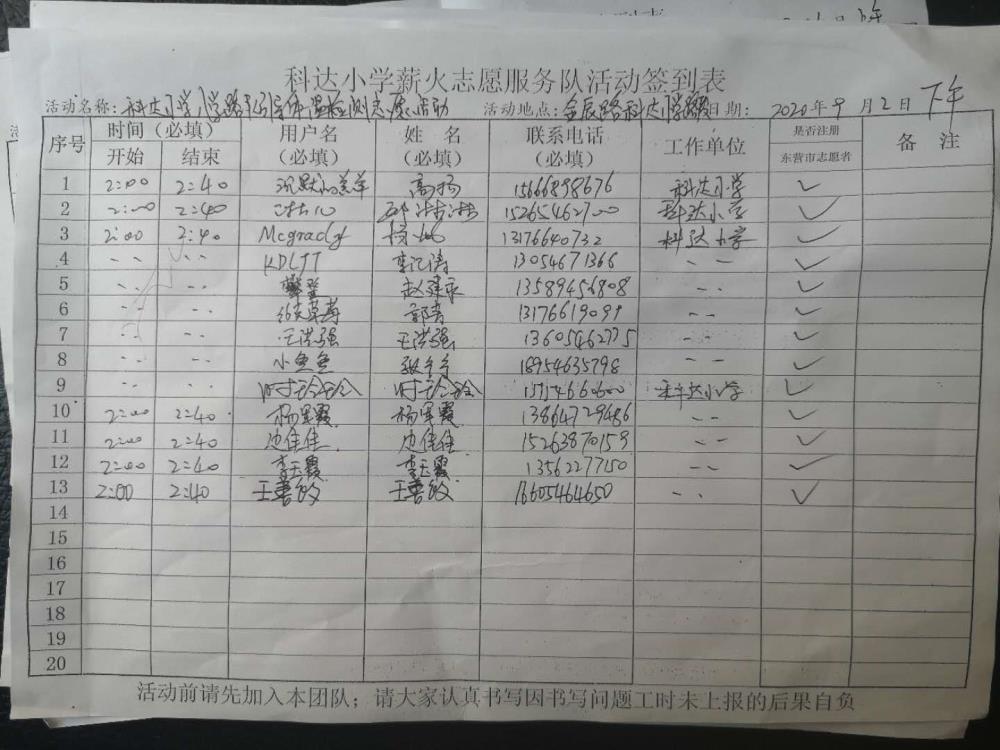 科达小学薪火志愿服务队活动签到表
活动名称: 科达小学 活动地点: 日期: 2020年9月2日 下午
序号 时间(必填) 用户名(必填) 姓名(必填) 联系电话(必填) 工作单位 是否注册东营市志愿者 备注
开始 结束
1 2:00 2:40 高扬 15666898676 科达小学 ✓
2 2:00 2:40 15265462700 科达小学 ✓
3 2:00 2:40 Mcgrady 13176640732 科达小学 ✓
4 ·· ·· KDLJT 13054671366 -- ✓
5 ·· ·· 赵建永 13589456808 -- ✓
6 ·· ·· 郭青 13176619099 -- ✓
7 ·· ·· 王洪强 王洪强 13605462775 ✓
8 ·· ·· 小鱼鱼 18954635798 -- ✓
9 ·· ·· 时玲玲 时玲玲 科达小学 ✓
10 2:00 2:40 杨军霞 杨军霞 13864729486 -- ✓
11 2:00 2:40 边佳佳 边佳佳 15263870159 -- ✓
12 2:00 2:40 李玉霞 李玉霞 13562277150 -- ✓
13 2:00 2:40 王春敏 王春敏 16605464650 -- ✓
14
15
16
17
18
19
20
活动前请先加入本团队；请大家认真书写因书写问题工时未上报的后果自负